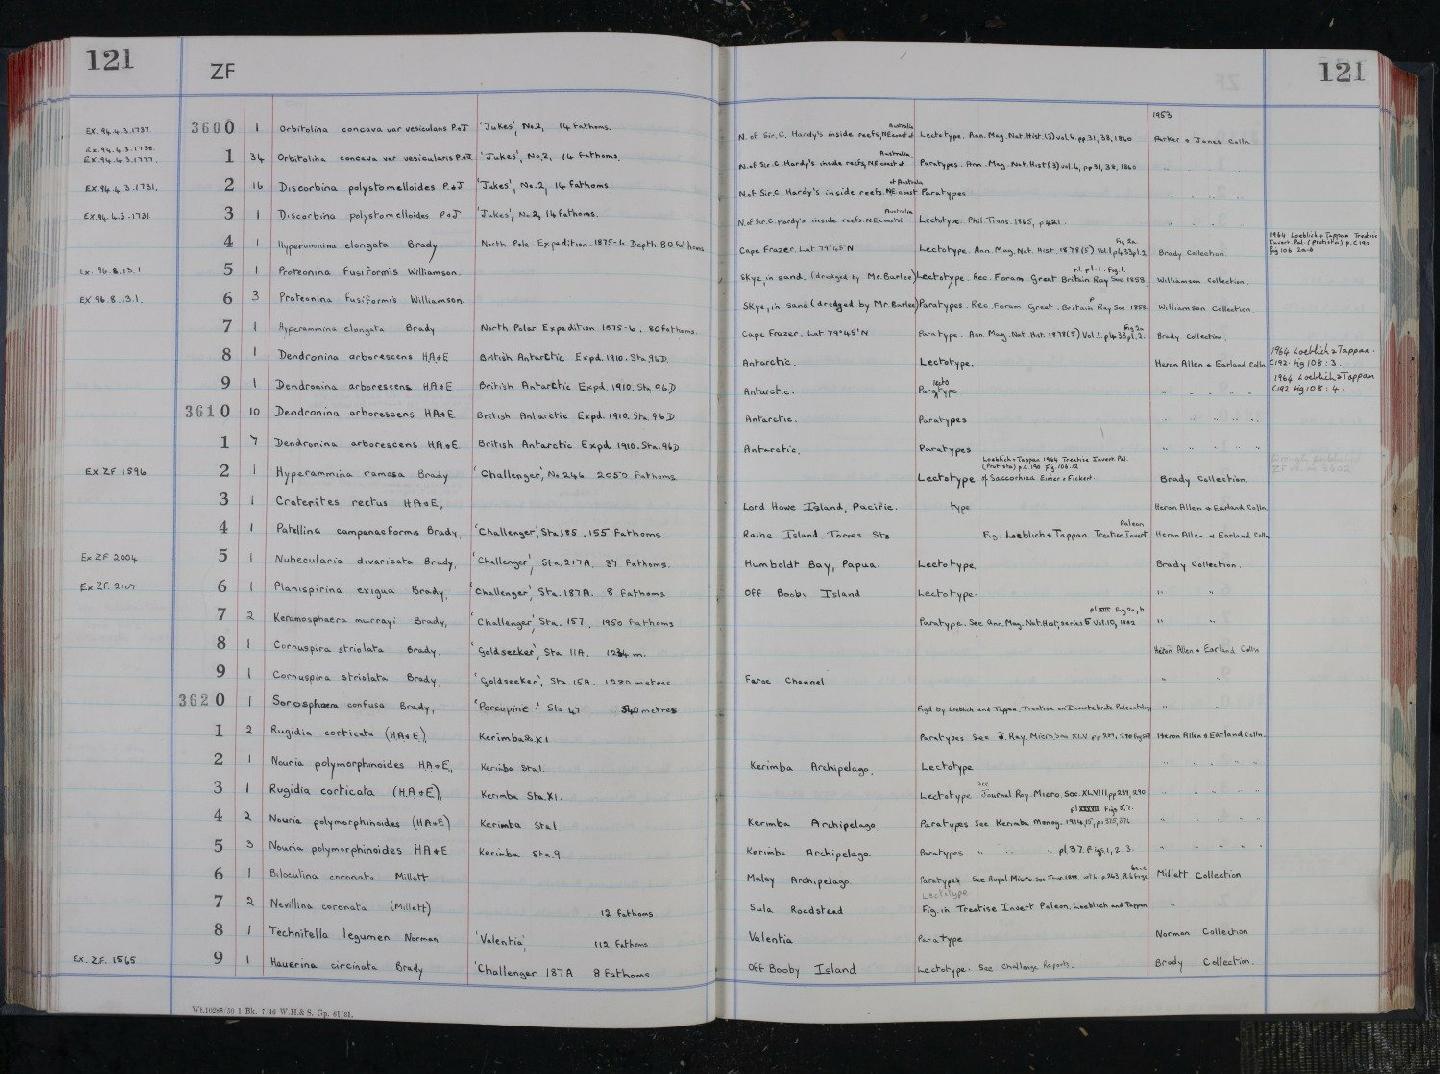 121 ZF 121
1953
EX. 94.4.3.1737. 3600 1 Orbitolina concava var vesicularis P&J 'Jukes', No.2, 14 Fathoms. N. of Sir. C. Hardy's inside reefs, NE coast of Australia Lectotype. Ann. Mag. Nat. Hist. (3) vol. 6. pp. 31, 38, 1860 Parker & Jones Colln
EX. 94.4.3.1777. 1 34 Orbitolina concava var vesicularis P&J. 'Jukes', No.2, 14 Fathoms. N. of Sir C. Hardy's inside reefs, N.E. coast of Australia. Paratypes. Ann. Mag. Nat. Hist (3) vol. 6, pp 31, 38, 1860
EX. 94.4.3.1731. 2 16 Discorbina polystomelloides P&J 'Jukes', No.2, 14 Fathoms N. of Sir. C Hardy's inside reefs. N.E. coast of Australia Paratypes
EX. 94.4.3.1731 3 1 Discorbina polystomelloides P&J 'Jukes', No.2, 14 Fathoms. N. of Sir. C. Hardy's inside reefs. N.E. coast Australia Lectotype. Phil. Trans. 1865, p421.
4 1 Hyperammina elongata Brady North Pole Expedition. 1875-6 Depth. 80 fathoms Cape Frazer. Lat 79°45'N Lectotype. Ann. Mag. Nat. Hist. 1878 (5) Vol. 1 p433 pl. 2. Fig 2a Brady Collection. 1964 Loeblich & Tappan Treatise Invert. Pal. (Protista) p. C190 fig 106 2a-b
Ex. 96.8.13.1 5 1 Proteonina fusiformis Williamson. Skye, in sand. (dredged by Mr. Barlee) Lectotype. Rec. Foram Great Britain Ray Soc 1858 Williamson Collection.
EX 96.8.13.1. 6 3 Proteonina fusiformis Williamson Skye, in sand (dredged by Mr. Barlee) Paratypes. Rec. Foram Great. Britain Ray Soc 1858 Williamson Collection
7 1 Hyperammina elongata Brady North Polar Expedition 1875-6, 80 fathoms. Cape Frazer. Lat 79°45'N Paratype. Ann. Mag. Nat. Hist. 1878 (5) Vol 1. p433, pl. 2. Fig 2a Brady Collection.
8 1 Dendronina arborescens HA&E British Antarctic Expd. 1910. Sta. 96D. Antarctic. Lectotype. Heron Allen & Earland Colln 1964 Loeblich & Tappan. C192. fig 108: 3.
9 1 Dendronina arborescens HA&E British Antarctic Expd. 1910. Sta 96D Antarctic. Paratype lecto " " " " 1964 Loeblich & Tappan C192 fig 108: 4.
3610 10 Dendronina arborescens HA&E British Antarctic Expd. 1910. Sta. 96D Antarctic. Paratypes " " " "
1 7 Dendronina arborescens HA&E. British Antarctic Expd 1910. Sta. 96D Antarctic. Paratypes " " " "
EX ZF 1596 2 1 Hyperammina ramosa Brady 'Challenger', No 246 2050 Fathoms Lectotype of Saccorhiza Eimer & Fickert. Loeblich & Tappan 1964 Treatise Invert. Pal. (Protista) p. C.190 Fig. 106.2 Brady Collection.
3 1 Craterites rectus HA&E, Lord Howe Island, Pacific. type Heron Allen & Earland Colln
4 1 Patellina campanaeformis Brady, 'Challenger', Sta 185. 155 Fathoms Raine Island Torres Sts Fig. Loeblich & Tappan Treatise Invert Paleon Heron Allen & Earland Colln
Ex ZF 2004 5 1 Nubecularia divaricata Brady, 'Challenger', Sta. 217A. 37 Fathoms. Humboldt Bay, Papua. Lectotype. Brady Collection.
Ex ZF. 6 1 Planispirina exigua Brady, 'Challenger', Sta. 187A. 8 Fathoms Off Booby Island Lectotype. " "
7 2 Keramosphaera murrayi Brady, 'Challenger', Sta. 157, 1950 Fathoms Paratype. See Ann. Mag. Nat. Hist, series 5 Vol. 10, 1882 " "
8 1 Cornuspira striolata Brady. 'Goldseeker', Sta 11A. m. Heron Allen & Earland Colln
9 1 Cornuspira striolata Brady. 'Goldseeker', Sta 15A. metres Faroe Channel " "
3620 1 Sorosphaera confusa Brady, 'Porcupine' Sta 47 540 metres Figd by Loeblich and Tappan, Treatise on Invertebrate Paleontology "
1 2 Rugidia corticata (HA&E), Kerimba St. XI Paratypes See J. Roy. Micro. Soc XLV Heron Allen & Earland Colln.
2 1 Nouria polymorphinoides HA&E, Kerimba Sta 1. Kerimba Archipelago. Lectotype " " " "
3 1 Rugidia corticata (HA&E), Kerimba Sta. XI. Lectotype see Journal Roy. Micro. Soc. XLVIII pp 289, 290 " " " "
4 2 Nouria polymorphinoides (HA&E) Kerimba Sta 1 Kerimba Archipelago Paratypes See Kerimba Monog. 1914, 15, p. 375, 376 " " " "
5 3 Nouria polymorphinoides HA&E Kerimba Sta. 9 Kerimba Archipelago. Paratypes " " " pl. 37. Figs. 1, 2, 3. " " " "
6 1 Biloculina coronata Millett Malay Archipelago Paratype See Royal Micro. Soc. p. 263 Millett Collection
Lectotype
7 2 Nevillina coronata (Millett) 12 Fathoms Sula Roadstead Fig. in Treatise Invert Paleon. Loeblich and Tappan "
8 1 Technitella legumen Norman 'Valentia', 112 Fathoms Valentia Paratype Norman Collection
EX. ZF. 1565 9 1 Hauerina circinata Brady 'Challenger 187A 8 Fathoms Off Booby Island Lectotype. See Challenge Reports. Brady Collection.